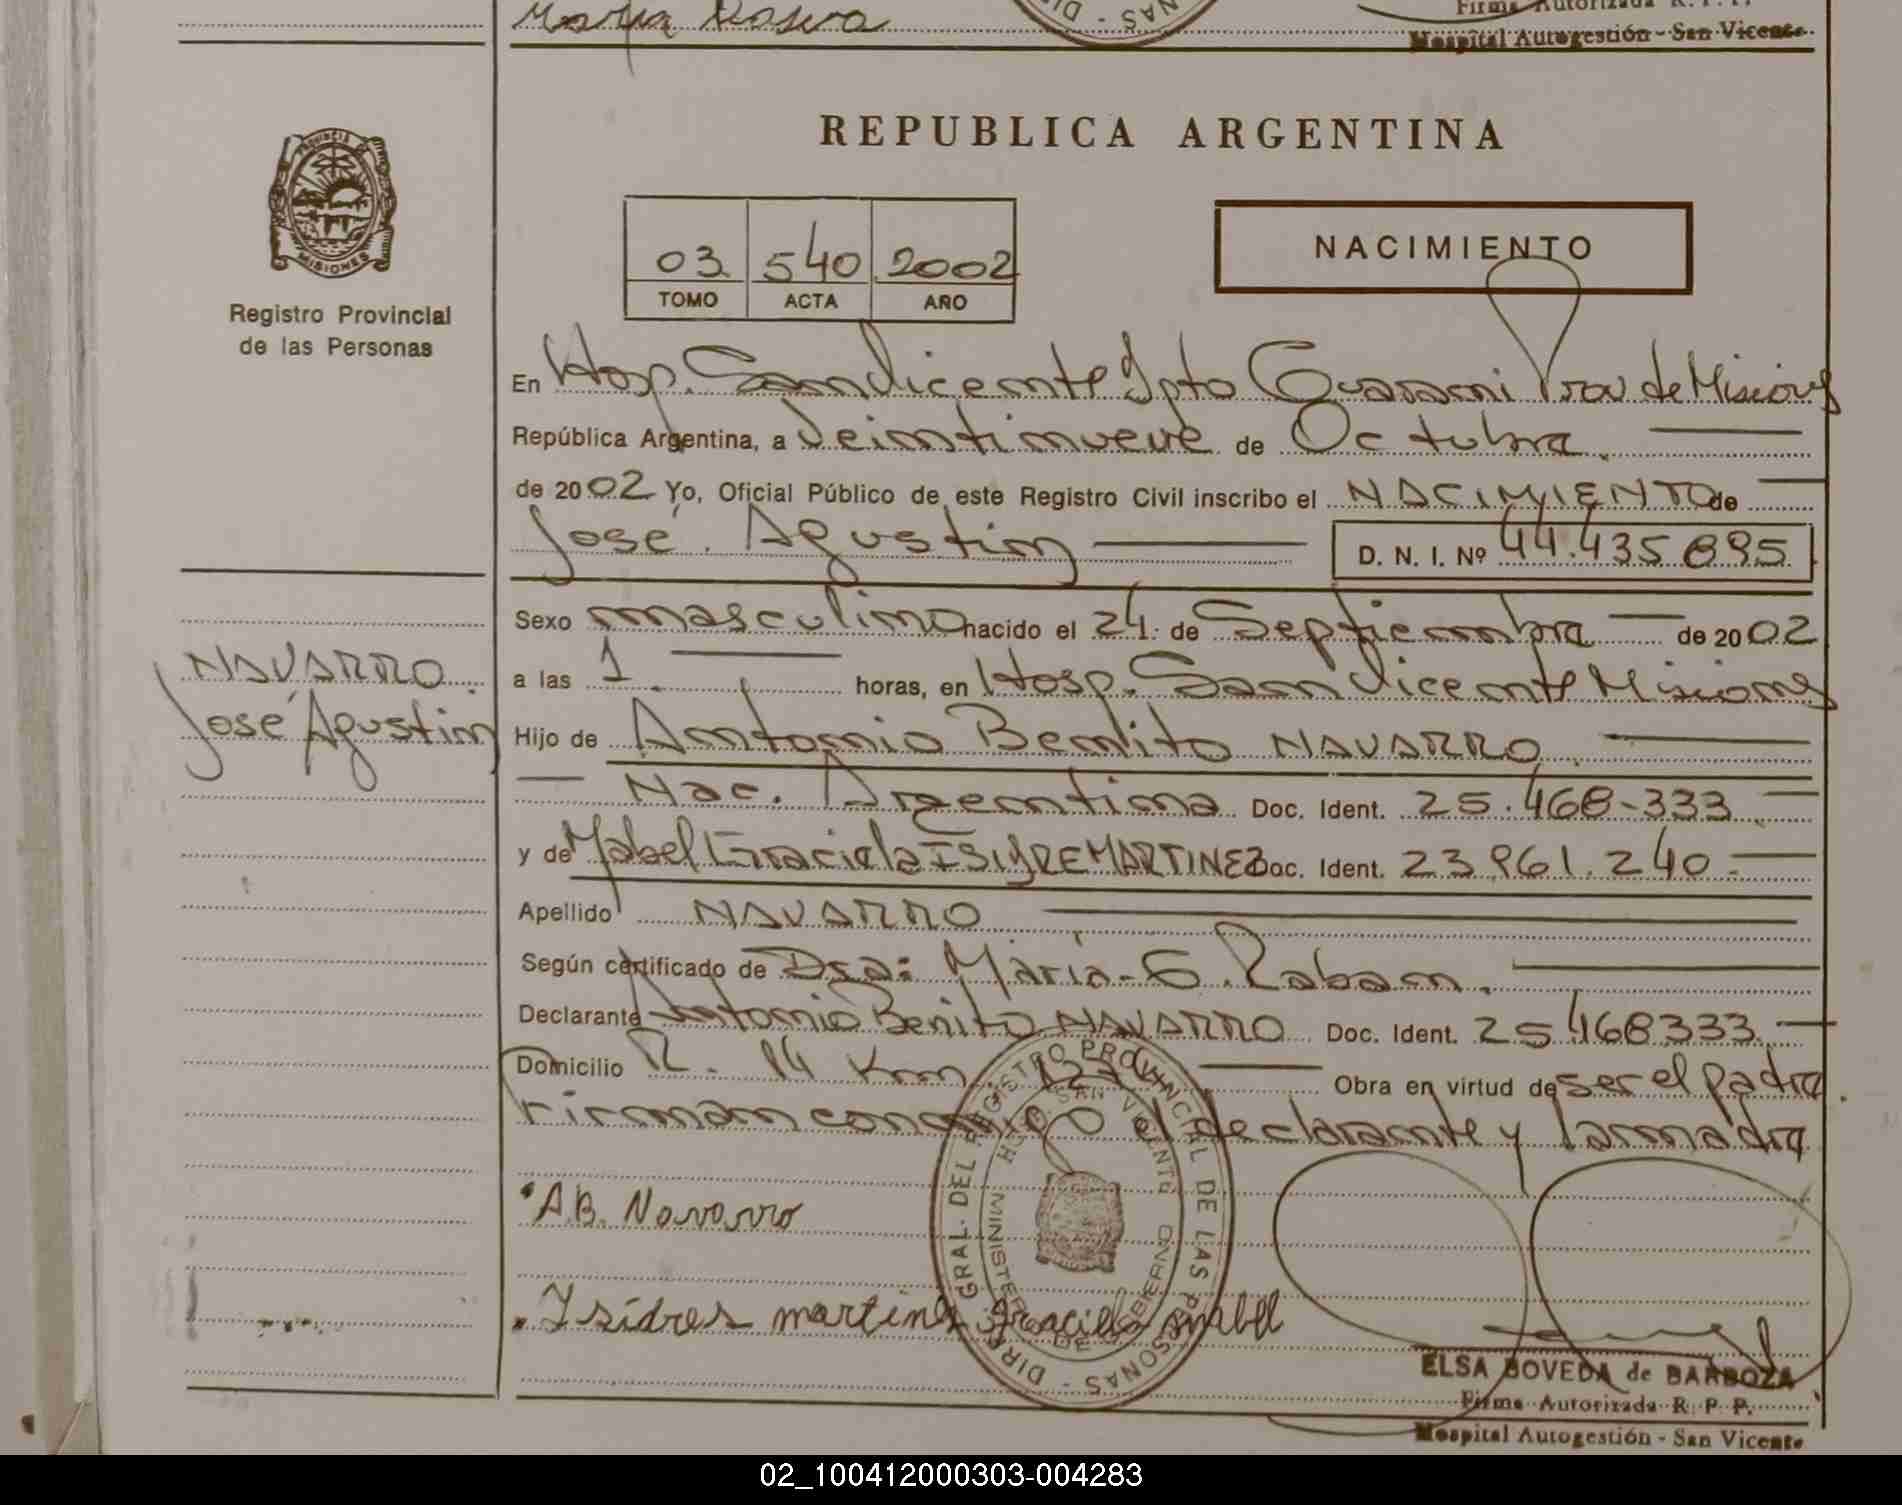 Maria Rosura
Firma Autorizada R. P. P.
Hospital Autogestión - San Vicente
PROVINCIA DE
MISIONES
Registro Provincial
de las Personas
REPUBLICA ARGENTINA
03 540 2002
TOMO ACTA AÑO
NACIMIENTO
En Hosp. San Vicente Dpto Guarani Prov de Misiones
República Argentina, a Veintinueve de Octubre.
de 2002 Yo, Oficial Público de este Registro Civil inscribo el NACIMIENTO de
José Agustin D. N. I. Nº 44.435 895
Sexo masculino nacido el 24 de Septiembre de 2002
a las 1 horas, en Hosp. San Vicente Misiones
NAVARRO
José Agustin
Hijo de Antonio Benito NAVARRO
Nac. Argentina Doc. Ident. 25.468-333
y de Mabel Graciela ISIDRE MARTINEZ Doc. Ident. 23.961.240
Apellido NAVARRO
Según certificado de Dra: Maria - G. Raban.
Declarante Antonio Benito NAVARRO Doc. Ident. 25468333
Domicilio R. 14 Km. Obra en virtud de ser el padre.
Firman conmigo el declarante y la madre
A.B. Navarro
Isidres martines graciela mabel
DIRE GRAL. DEL REGISTRO PROVINCIAL DE LAS PERSONAS
SAN VICENTE
MINISTERIO DE GOBIERNO
ELSA BOVEDA de BARBOZA
Firma Autorizada R. P. P.
Hospital Autogestión - San Vicente
02_100412000303-004283